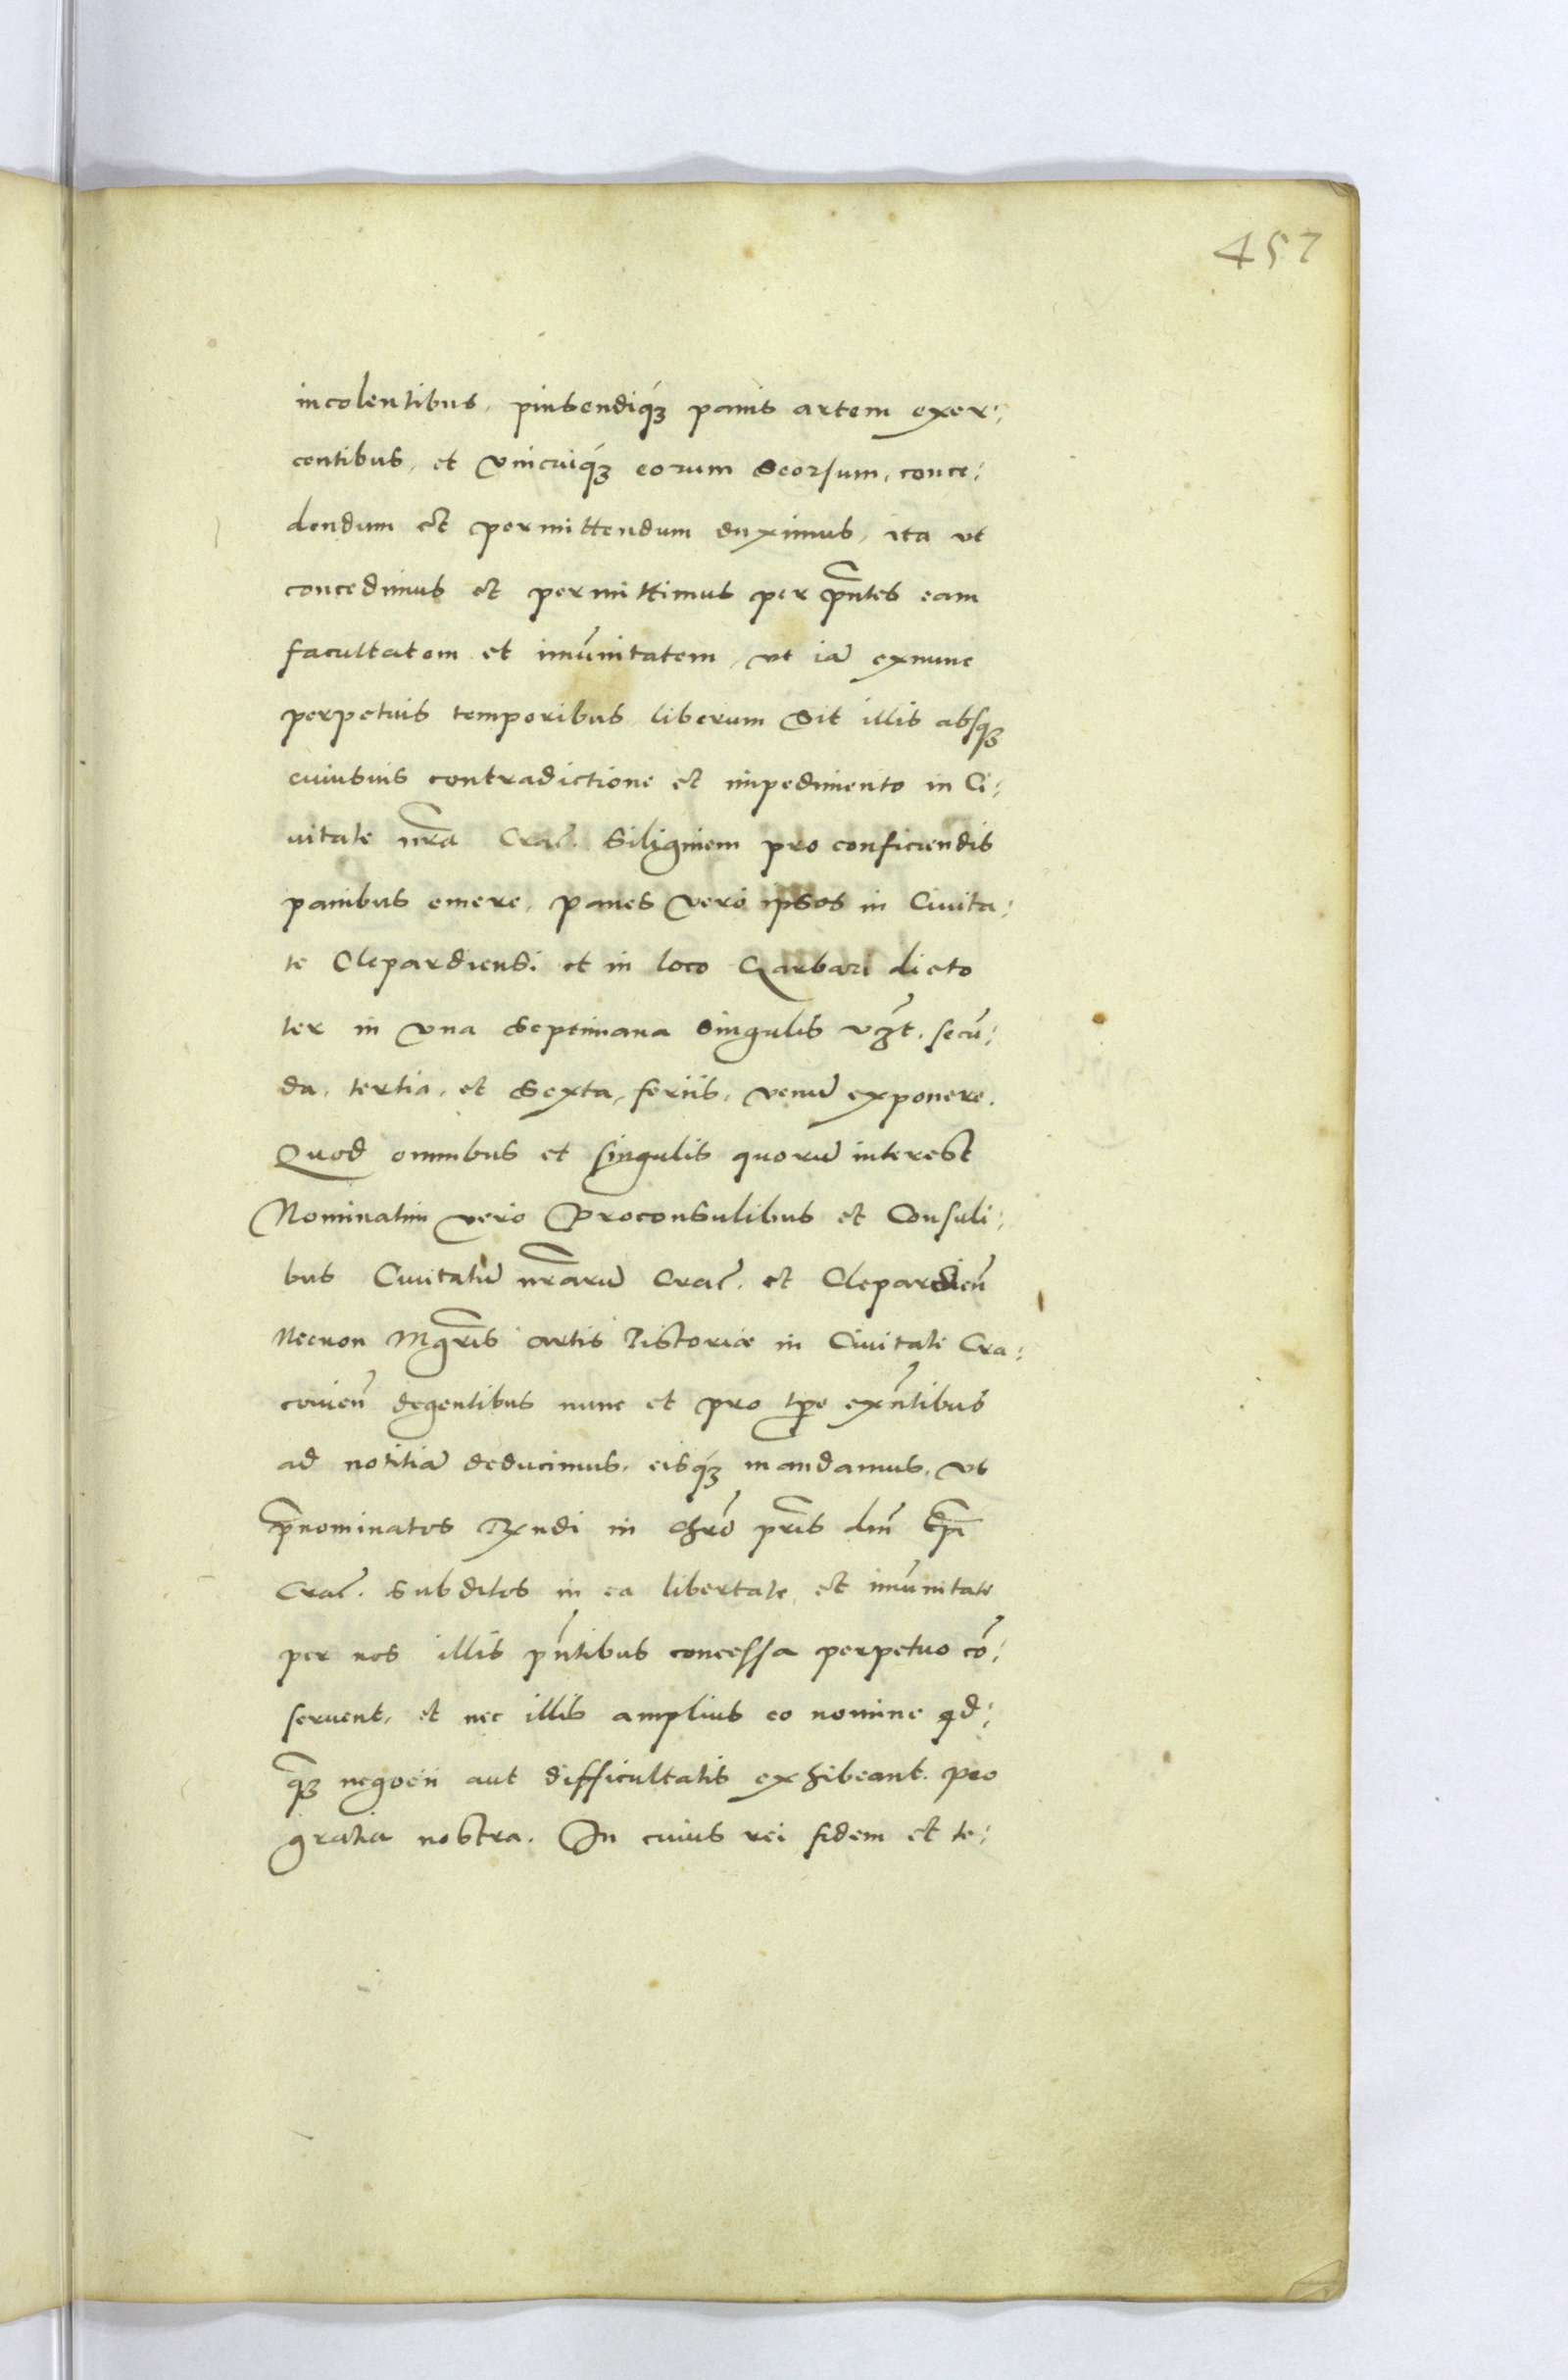 457
incolentibus, pinsendiq́ꝫ panis artem exer:
centibus, et vnicuiq́ꝫ eorum seorsum, conce:
dendum et permittendum duximus, ita vt
concedimus et permittimus per p̄ntes eam
facultatem et imūnitatem, vt iā exnunc
perpetuis temporibus liberum sit illis absqꝫ
cuiusuis contradictione et impedimento in Ci:
uitate nrā Crac̄. Siliginem pro conficiendis
panibus emere, panes vero ipsos in Ciuita:
te Clepardiensi et in loco Garbari dicto
ter in vna septimana singulis vꝫt. secū:
da, tertia, et sexta, feriis, venū exponere.
Quod omnibus et singulis quorū interest
Nominatim vero Proconsulibus et Consuli:
bus Ciuitatū nr̄arū Crac̄. et Clepardień
Necnon Mgr̄is artis Pistoriæ in Ciuitate Cra:
covień degentibus nunc et pro tp̄e exn̄tibus
ad notitiā deducimus, eisq́ꝫ mandamus, vt
p̄nominatos Rx̄ndi in Chrō pr̄is dn̄i Ep̄i
Crac̄. subditos in ea libertate et imūnitate
per nos illis pn̄tibus concessa perpetuo cō:
seruent, et nec illis amplius eo nomine qd:
q̄ꝫ negocii aut difficultatis exhibeant. pro
gratia nostra. In cuius rei fidem et te: